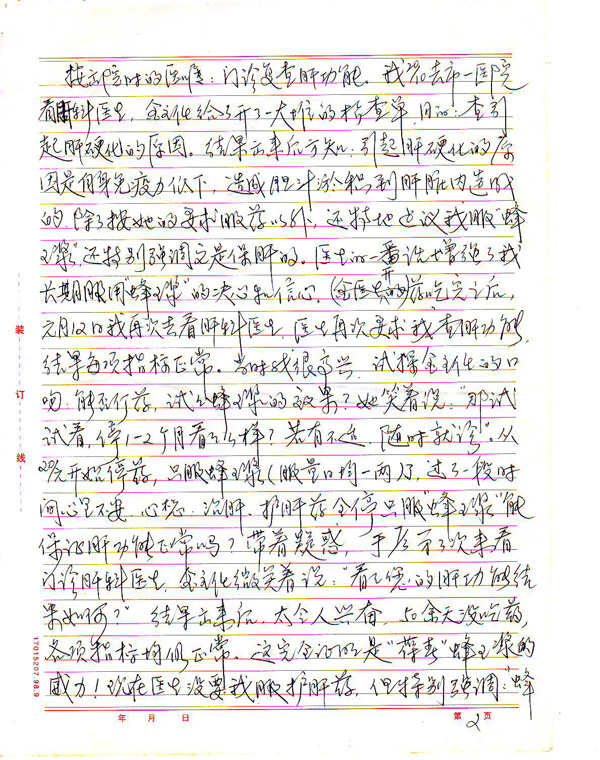 按出院时的医嘱：门诊复查肝功能。我去市一医院
看肝科医生，金主任给我开了一大堆的检查单，目的：查引
起肝硬化的原因。结果出来后方知，引起肝硬化的原
因是自身免疫力低下，造成胆汁淤积到肝脏内造成
的，除了按她的要求服药以外，还特地建议我服“蜂
王浆”，还特别强调它是保肝的。医生的一番话增强了我
长期服用“蜂王浆”的决心和信心。医生开的药吃完之后，
元月12日我再次去看肝科医生，医生再次要求我查肝功能，
结果每项指标正常。当时我很高兴，试探金主任的口
吻：能否停药，试试蜂王浆的效果？她笑着说：“那试
试看，停1-2个月看怎么样？若有不适，随时就诊”。从
开始停药，只服蜂王浆（服量日均一两），过了一段时
间心里不安，心想：治肝、护肝药全停只服“蜂王浆”能
保证肝功能正常吗？带着疑惑，于第三次来看
门诊肝科医生，金主任微笑着说：“看看您的肝功能结
果如何？” 结果出来后，太令人兴奋，50余天没吃药，
各项指标均仍正常。这完全证明是“葆春”蜂王浆的
威力！现在医生没要我服护肝药，但特别强调：“蜂
装
订
线
17015207.98.9
年 月 日
第 2 页